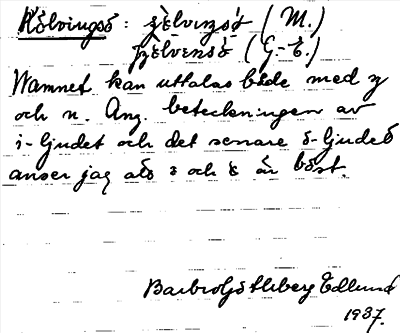 Kölvingsö: (M.)
(G.-E.)
Namnet kan uttalas både med ŋ
och n. Ang. beteckningen av
i-ljudet och det senare ö-ljudet
anser jag att och är bäst.
Barbro Götlberg Edlund
1937.